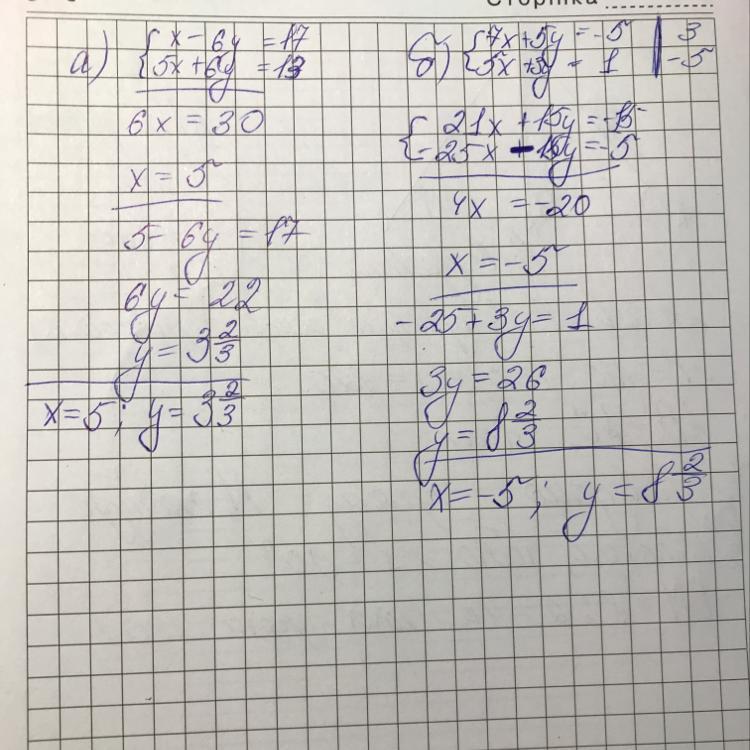 Сторінка
а) { x - 6y = 17
{ 5x + 6y = 13
6x = 30
x = 5
5 - 6y = 17
6y = 22
y = 3 2/3
x = 5; y = 3 2/3
б) { 7x + 5y = -5 | 3
{ 5x + 3y = 1 | -5
{ 21x + 15y = -15
{ -25x - 15y = -5
4x = -20
x = -5
-25 + 3y = 1
3y = 26
y = 8 2/3
x = -5; y = 8 2/3